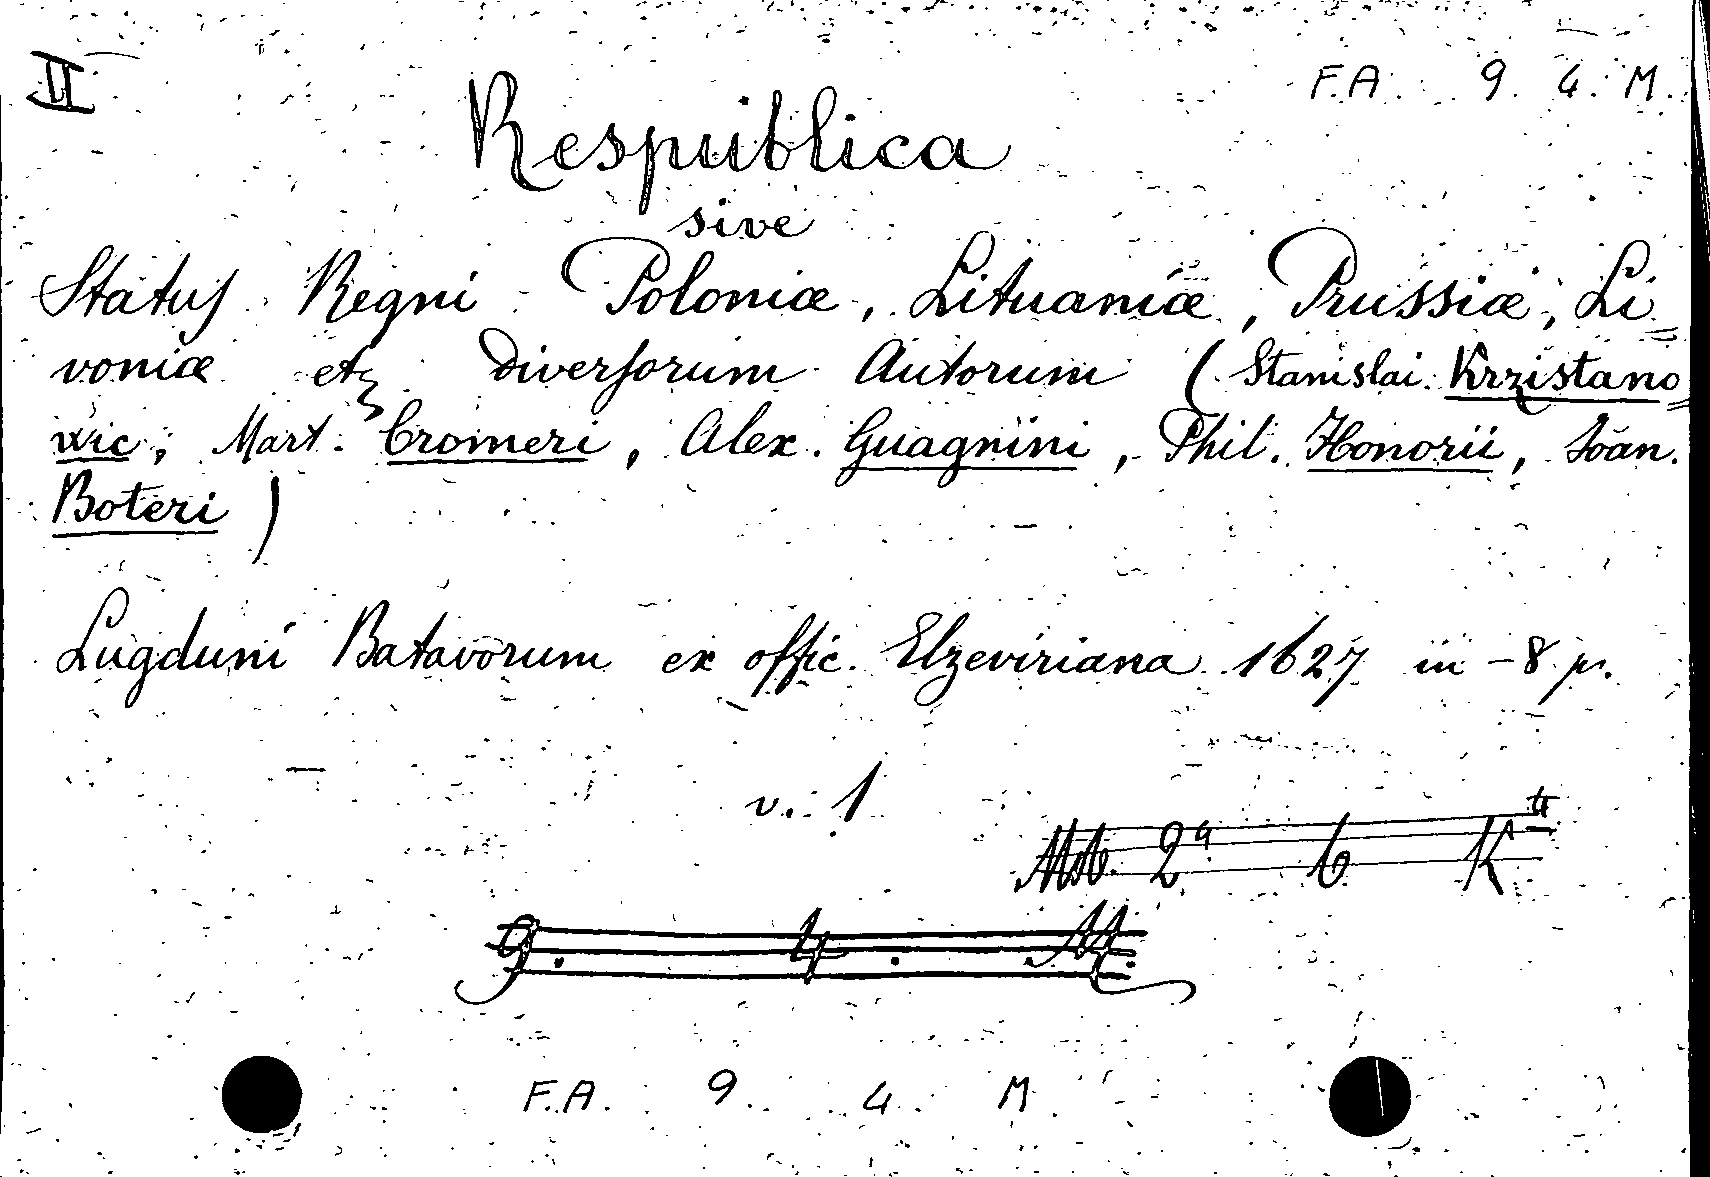 II
F.A. 9. 4. M.
Respublica
sive
Status Regni Poloniæ, Lituaniæ, Prussiæ, Li=
voniæ etz diversorum Autorum (Stanislai Krzistano=
wic, Mart. Cromeri, Alex. Guagnini, Phil. Honorii, Ioan.
Boteri)
Lugduni Batavorum ex offic. Elzeviriana 1627 in -8 p.
v. 1
2a 6 K4
9. 4. M.
F.A. 9. 4. M